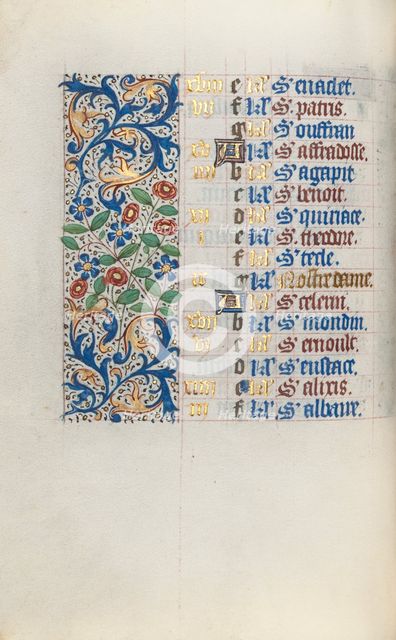 xviii e kl' S' enaclet.
vii f kl' S' patris.
g kl' S' ouffran
xv A kl' S' affradosse.
iiii b kl' S' agapit
c kl' S' benoit.
xii d kl' S' quinace.
i e kl' S' theodore.
f kl' S' tecle.
ix g kl' Nostre dame.
A kl' S' celerin.
xvii b kl' S' mondin.
vi c kl' S' ernoult.
d kl' S' eustace.
xiiii e kl' S' alixis.
iii f kl' S' albane.